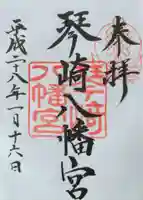 奉拝
琴崎八幡宮
平成二十八年一月十六日
琴崎
八幡宮